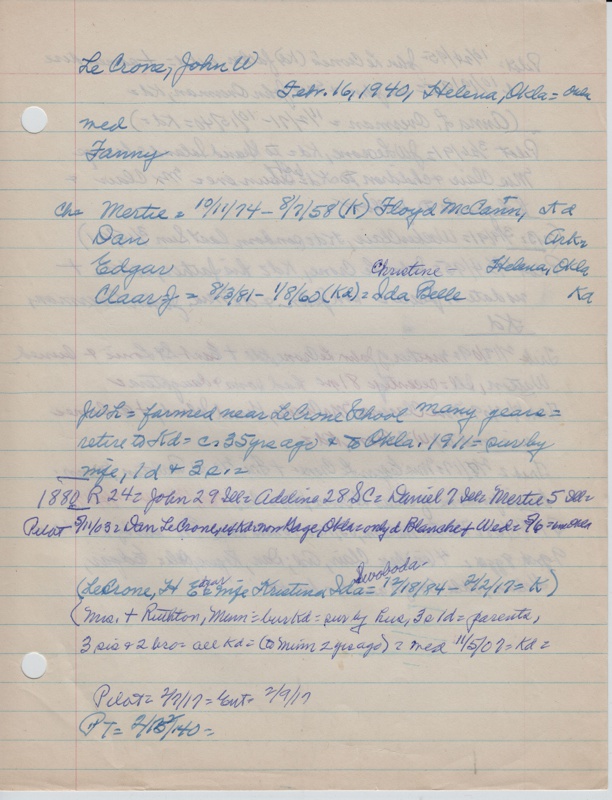 Le Crone, John W
Febr. 16, 1940, Helena, Okla = Okla
med
Fanny
Ch = Mertie = 10/11/74 - 8/7/58 (K) Floyd McCann, Kd
Dan Ark =
Edgar Helena, Okla
Christine -
Claar J = 8/3/81 - 1/8/60 (Kd) = Ida Belle Ka
JWL = farmed near LeCrone School many years =
retire to Kd = c. 35 yrs ago & to Okla. 1911 = sur by
wife, 1 d + 3 s. =
1880 R 24 = John 29 Ill = Adeline 28 SC = Daniel 7 Ill = Mertie 5 Ill =
Pilot 5/11/03 = Dan LeCrone, = only d Blanche + Wed =
Swoboda -
(LeCrone, H Edgar wife Kristina Ida = 12/18/84 - 2/2/17 = K)
(Mrs. + Ruthton, Minn = bur Kd = sur by hus, 3 s 1 d = parents,
3 sis & 2 bro = all Kd = (to Minn 2 yrs ago) = med 11/5/07 = Kd =
Pilot = 2/7/17 = Ent = 2/9/17
PT = 2/ /40 =